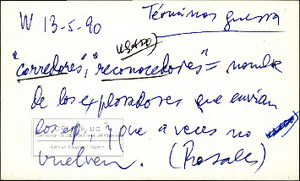 W 13-5-90 Términos guerra
USADO
"corredores", "reconocedores" = nombre
de los exploradores que envían
los esp. y que a veces no
vuelven. (Rosales)